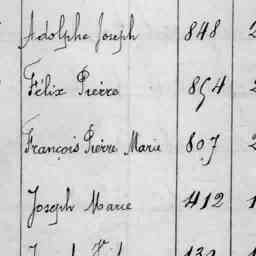 Adolphe Joseph 848 2
Félix Pierre 854
François Pierre Marie 807
Joseph Marie 412 1